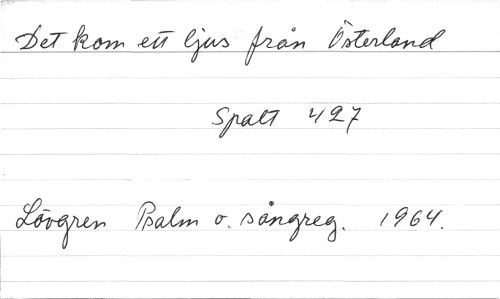 Det kom ett ljus från Österland
Spalt 427
Lövgren Psalm o. sångreg. 1964.